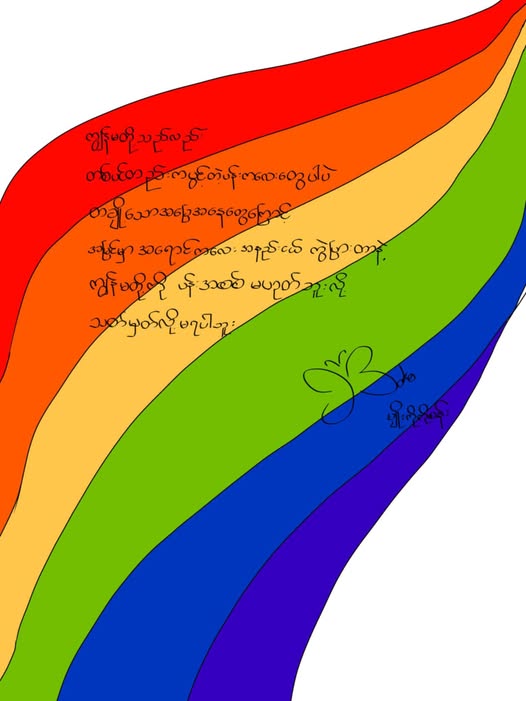 ကျွန်မတို့သည်လည်
တစ်ယ်တည်းကပွင့်တဲ့ပန်းကလေးတွေပါပဲ
တချို့သောအခြေအနေတွေကြောင့်
အပြင်မှာ အရောင်ကလေး အနည်းငယ် ကွဲပြားတာနဲ့
ကျွန်မတို့ကို ပန်းအစစ် မဟုတ်ဘူးလို့
သတ်မှတ်လို့မရပါဘူး